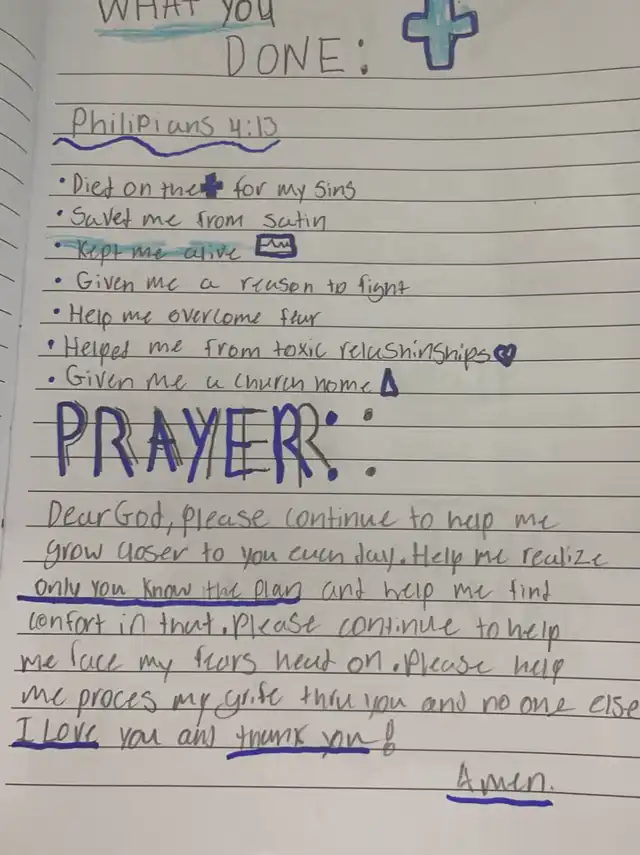 WHAT YOU
DONE:
Philipians 4:13
• Died on the for my sins
• Saved me from satin
• Kept me alive
• Given me a reason to fight
• Help me overcome fear
• Helped me from toxic relashinships
• Given me a church home
PRAYER:
Dear God, please continue to help me
grow closer to you each day. Help me realize
only you know the plan and help me find
confort in that. Please continue to help
me face my fears head on. Please help
me proces my grife thru you and no one else
I Love you and thank you!
Amen.